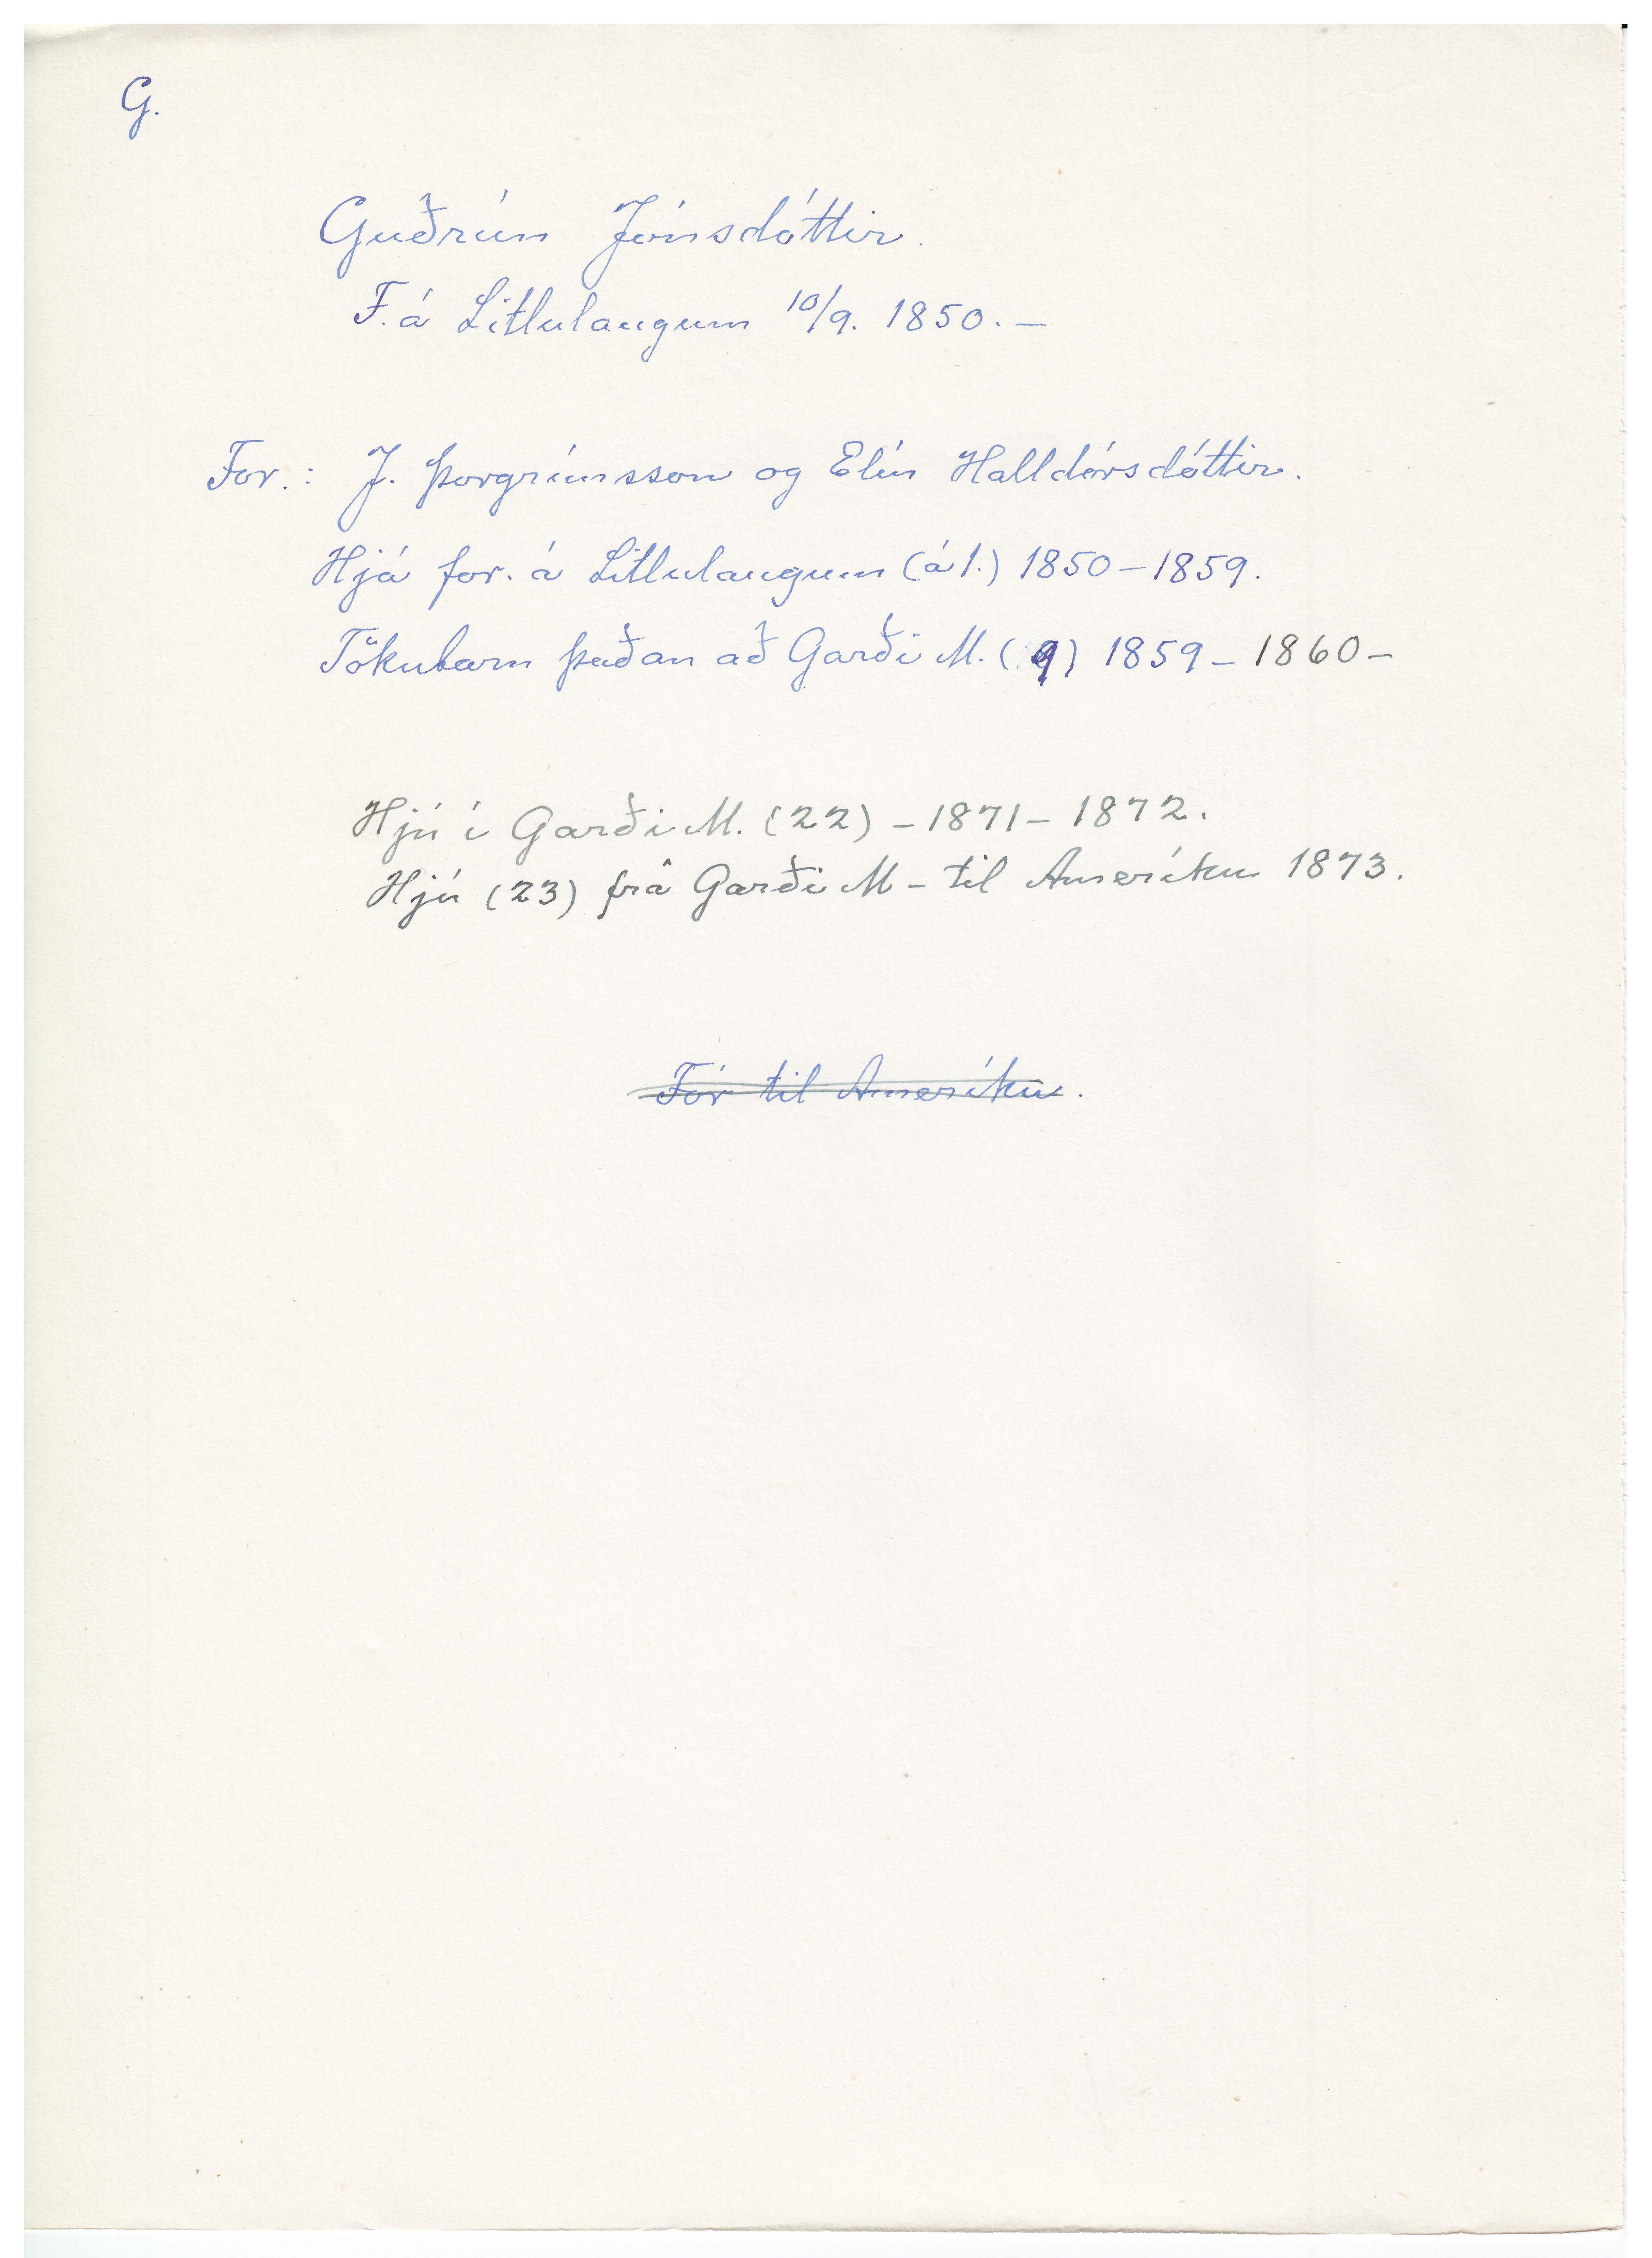 G.
Guðrún Jónsdóttir.
F. á Litlulaugum 10/9. 1850. –
For. : J. Þorgrímsson og Elín Halldórsdóttir.
Hjá for. á Litlulaugum (á 1.) 1850 – 1859.
Tökubarn þaðan að Garði M. (9) 1859 – 1860 –
Hjú í Garði M. (22) – 1871 – 1872.
Hjú (23) frá Garði M – til Ameríku 1873.
Fór til Ameríku.